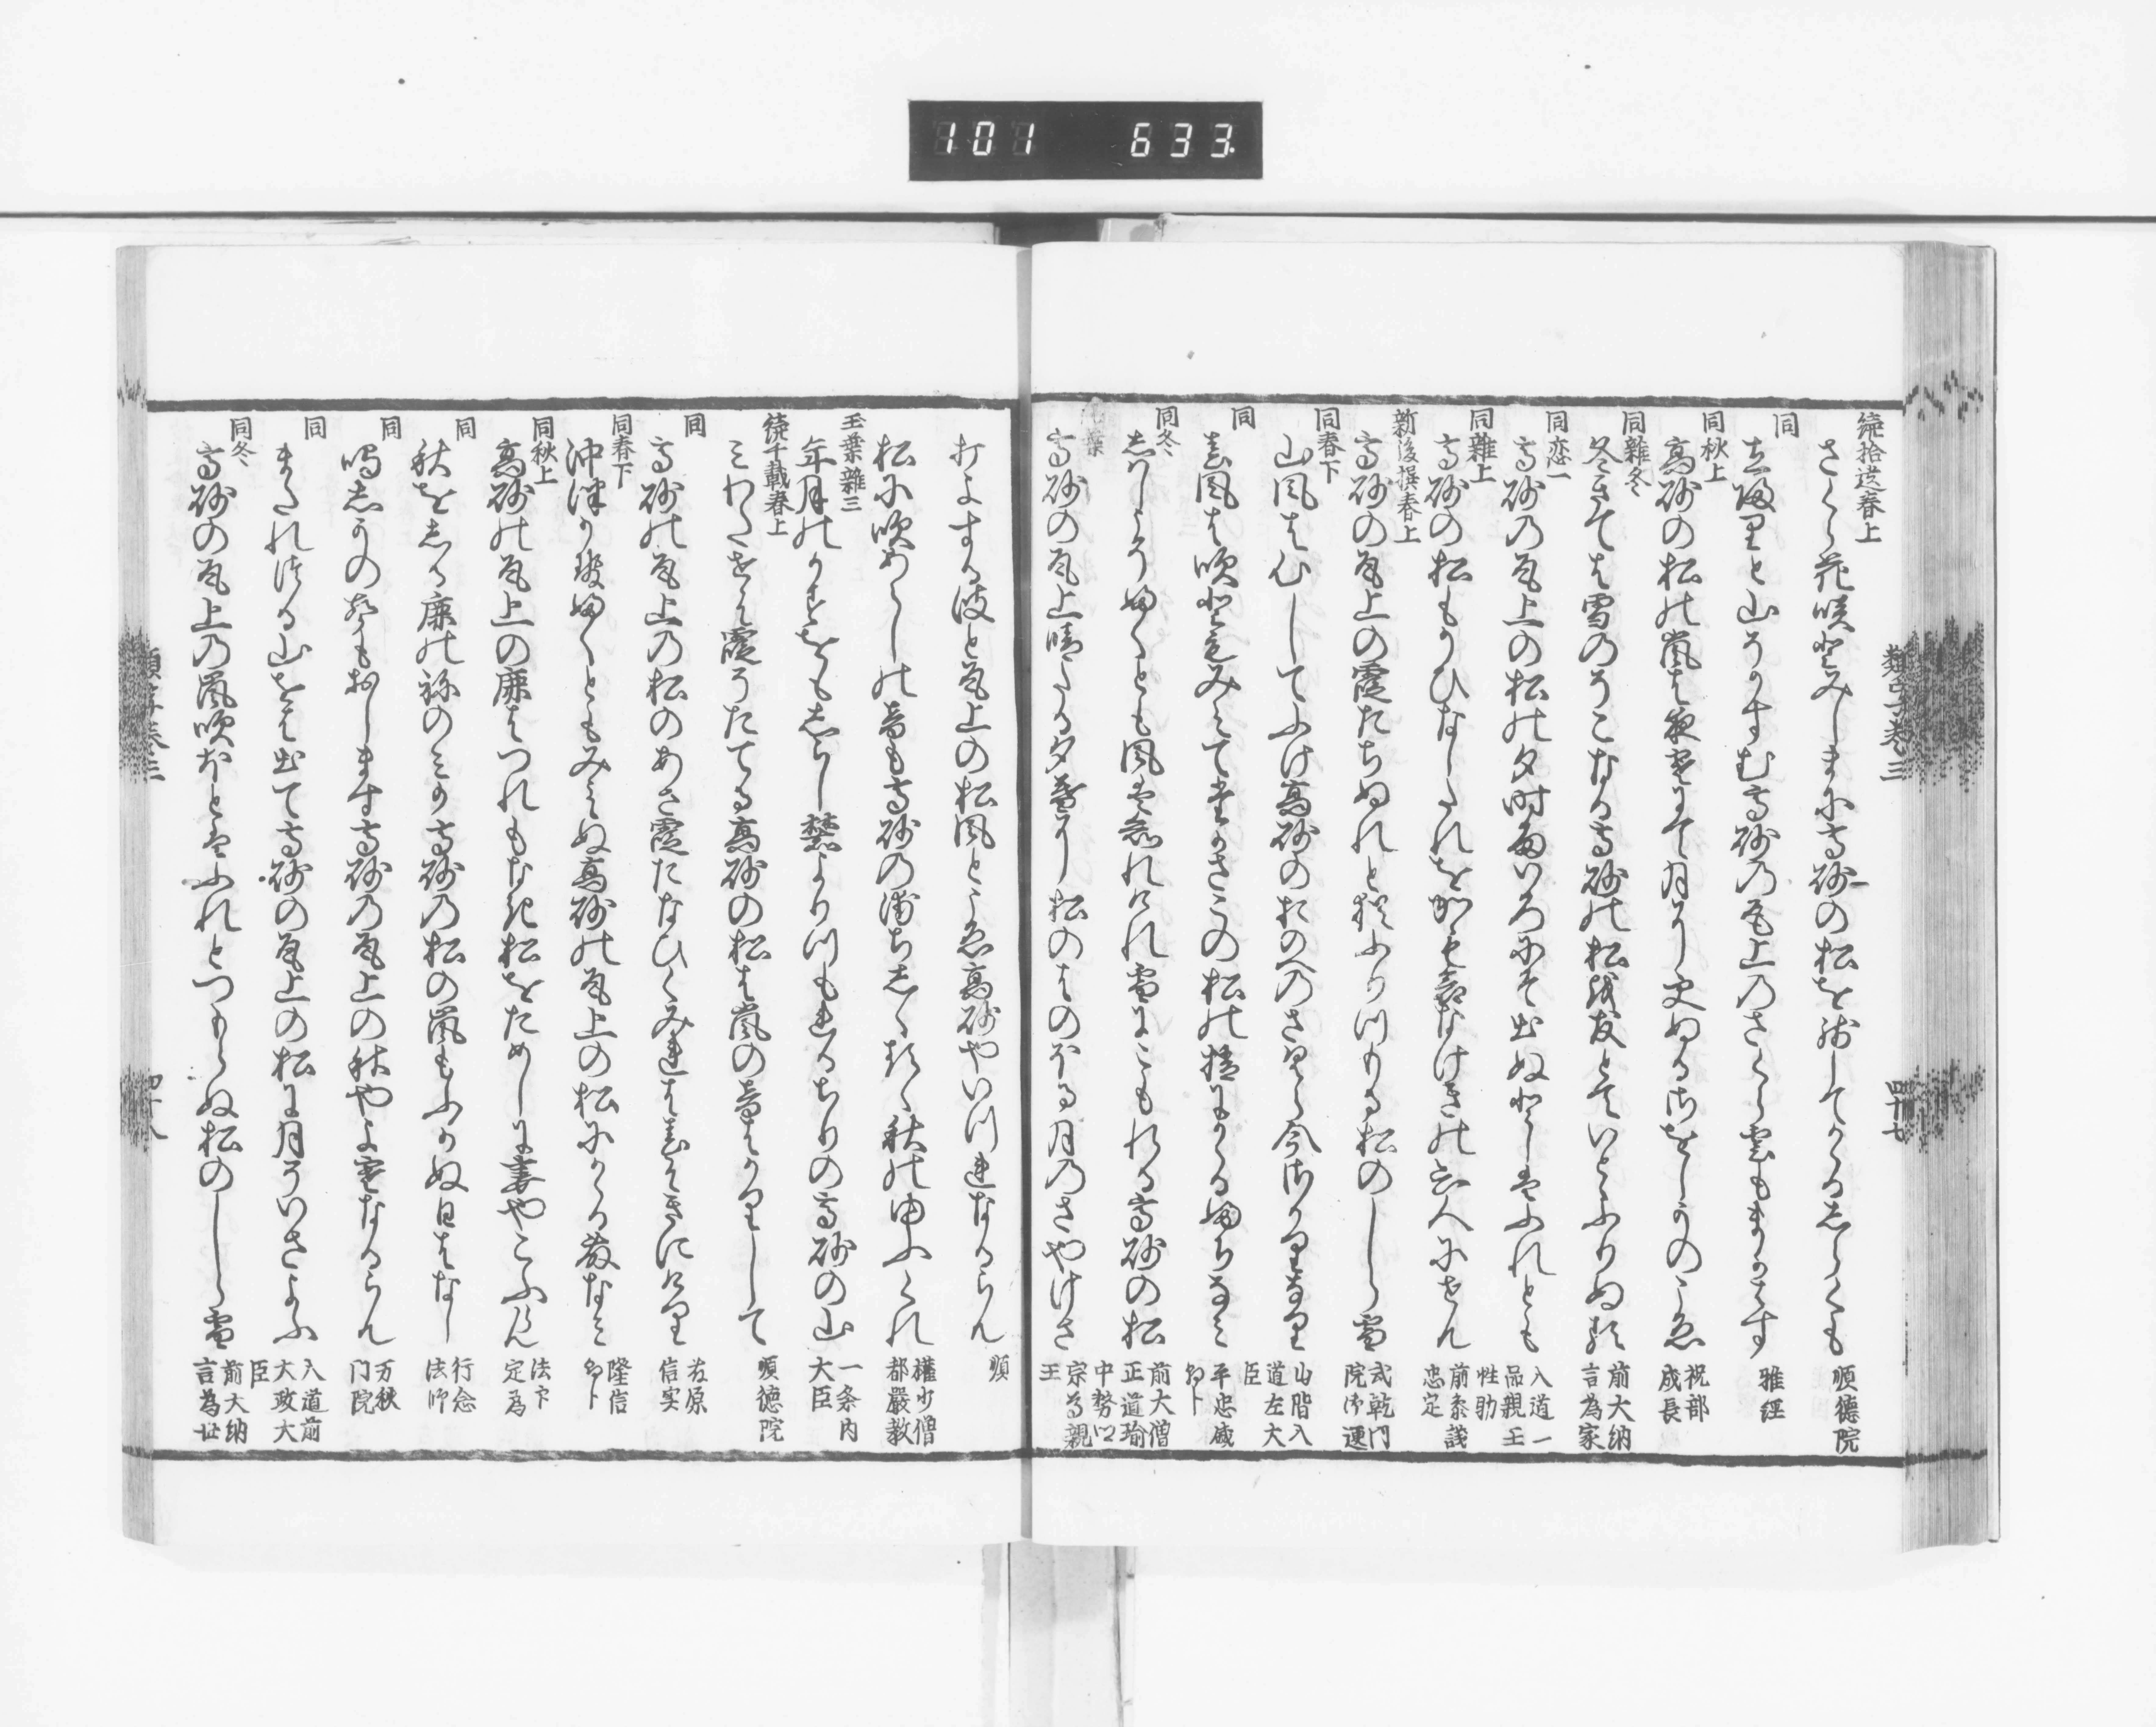 101 633.
類字巻三
四十七
続拾遺春上
さくら花咲とみしまに高砂の松を残してかゝるしらくも
順徳院
同
立帰り と山そかすむ高砂の尾上のさくら雲もまかはす
雅経
同秋上
高砂の松の嵐は夜寒にて月にそ更ぬるさをしかのこゑ
祝部成長
同雑冬
冬きては雪のそこなる高砂の松を友とていとゝふりぬる
前大納言為家
同恋一
高砂の尾上の松の夕時雨いろにそ出ぬとしはふれとも
入道一品親王性助
同雑上
高砂の松もかひなし
前参議忠定
新後撰春上
高砂の尾上の霞たちぬれと猶ふりつもる松のしら雪
式乾門院御匣
同春下
山風は心してふけ高砂のおのへのさくら今さかりなり
山階入道左大臣
同
春風は吹ともみえて高さこの松の梢にかゝるふちなみ
平忠盛朝臣
同冬
しはしこそふくとも風は しられけれ雪にこもれる高砂の松
前大僧正道瑜
玉葉
高砂の尾上晴たる夕暮に松のはのほる月のさやけさ
中務卿宗尊親王
打よする波と尾上の松風とこゑ高砂やいつれなるらん
順
松に吹あらしの音も高砂の浦
秋のゆふくれ
権少僧都厳教
玉葉雑三
年月の
をもしらし麓よりつもれるちりの高砂の山
一条内大臣
続千載春上
みわたせは霞そたてる高砂の松は嵐の音はかりして
順徳院
同
高砂の尾上の松のあさ霞たなひくみれは春はきにけり
藤原信実
同春下
沖津かせふくともみえぬ高砂の尾上の松にかゝる藤なみ
隆信朝臣
同秋上
高砂の尾上の鹿はつれもなき松をためしに妻やこふらん
法印定為
同
秋をしる鹿の
のみか高砂の松の嵐もふかぬ日はなし
行念法師
同
鳴しかの声もおします高砂の尾上の秋やよ寒なるらん
万秋門院
同
またれつる山をは出て高砂の尾上の松に月そいさよふ
入道前太政大臣
同冬
高砂の尾上の嵐吹ほとはふれとつもらぬ松のしら雪
前大納言為世
類字巻三
四十八